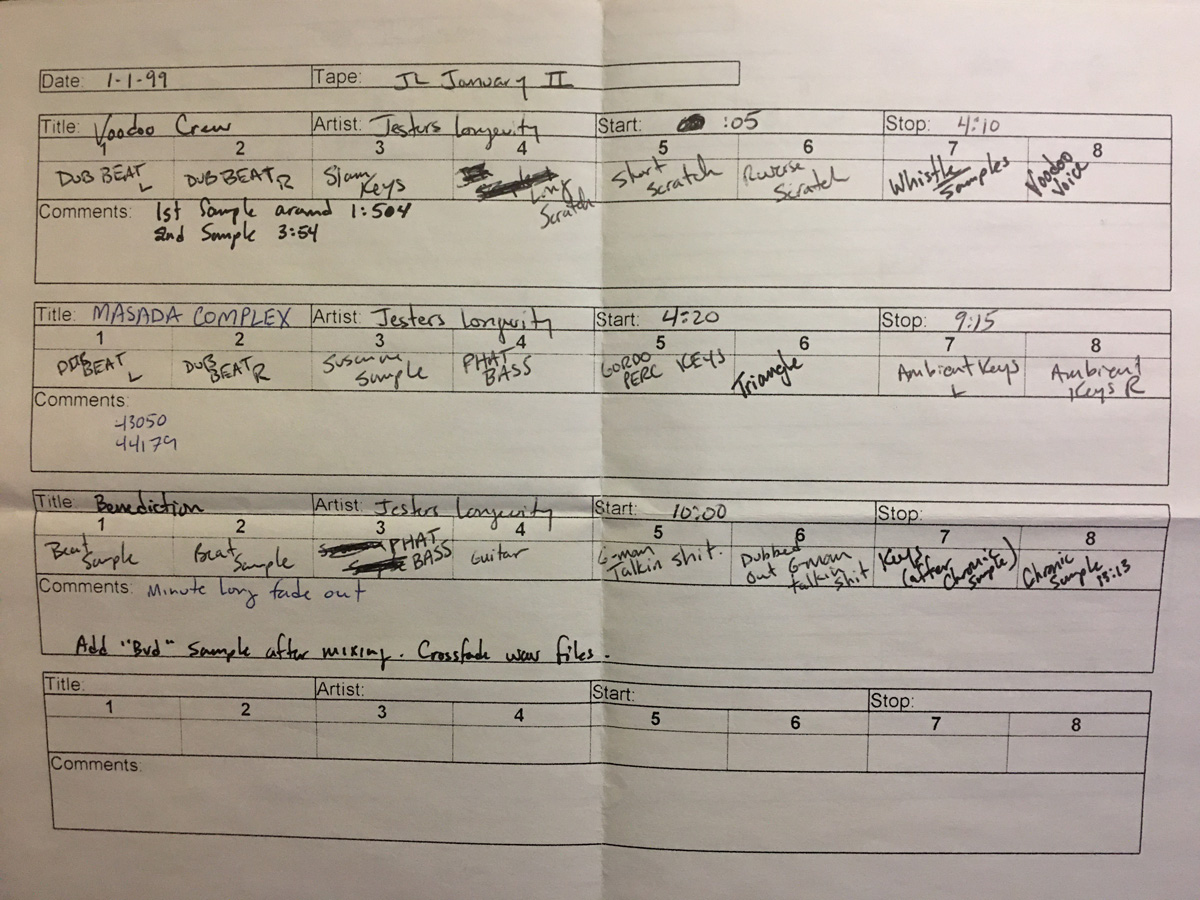 Date: 1-1-99 Tape: JL January II
Title: Voodoo Crew Artist: Jesters Longevity Start: :05 Stop: 4:10
1 2 3 4 5 6 7 8
DUB BEAT L DUB BEAT R Slam Keys Long Scratch Short Scratch Reverse Scratch Whistle Samples Voodoo Voice
Comments: 1st Sample around 1:504
2nd Sample 3:54
Title: MASADA COMPLEX Artist: Jesters Longevity Start: 4:20 Stop: 9:15
1 2 3 4 5 6 7 8
DUB BEAT L DUB BEAT R Susanne Sample PHAT BASS GORDO PERC KEYS Triangle Ambient Keys L Ambient Keys R
Comments:
43050
44179
Title: Benediction Artist: Jesters Longevity Start: 10:00 Stop:
1 2 3 4 5 6 7 8
Beat Sample Beat Sample PHAT BASS Guitar G-man Talkin shit. Dubbed out G-man talkin shit Keys (after Chronic Sample) Chronic Sample 13:13
Comments: Minute long fade out
Add "Bud" Sample after mixing. Crossfade wav files.
Title: Artist: Start: Stop:
1 2 3 4 5 6 7 8
Comments: